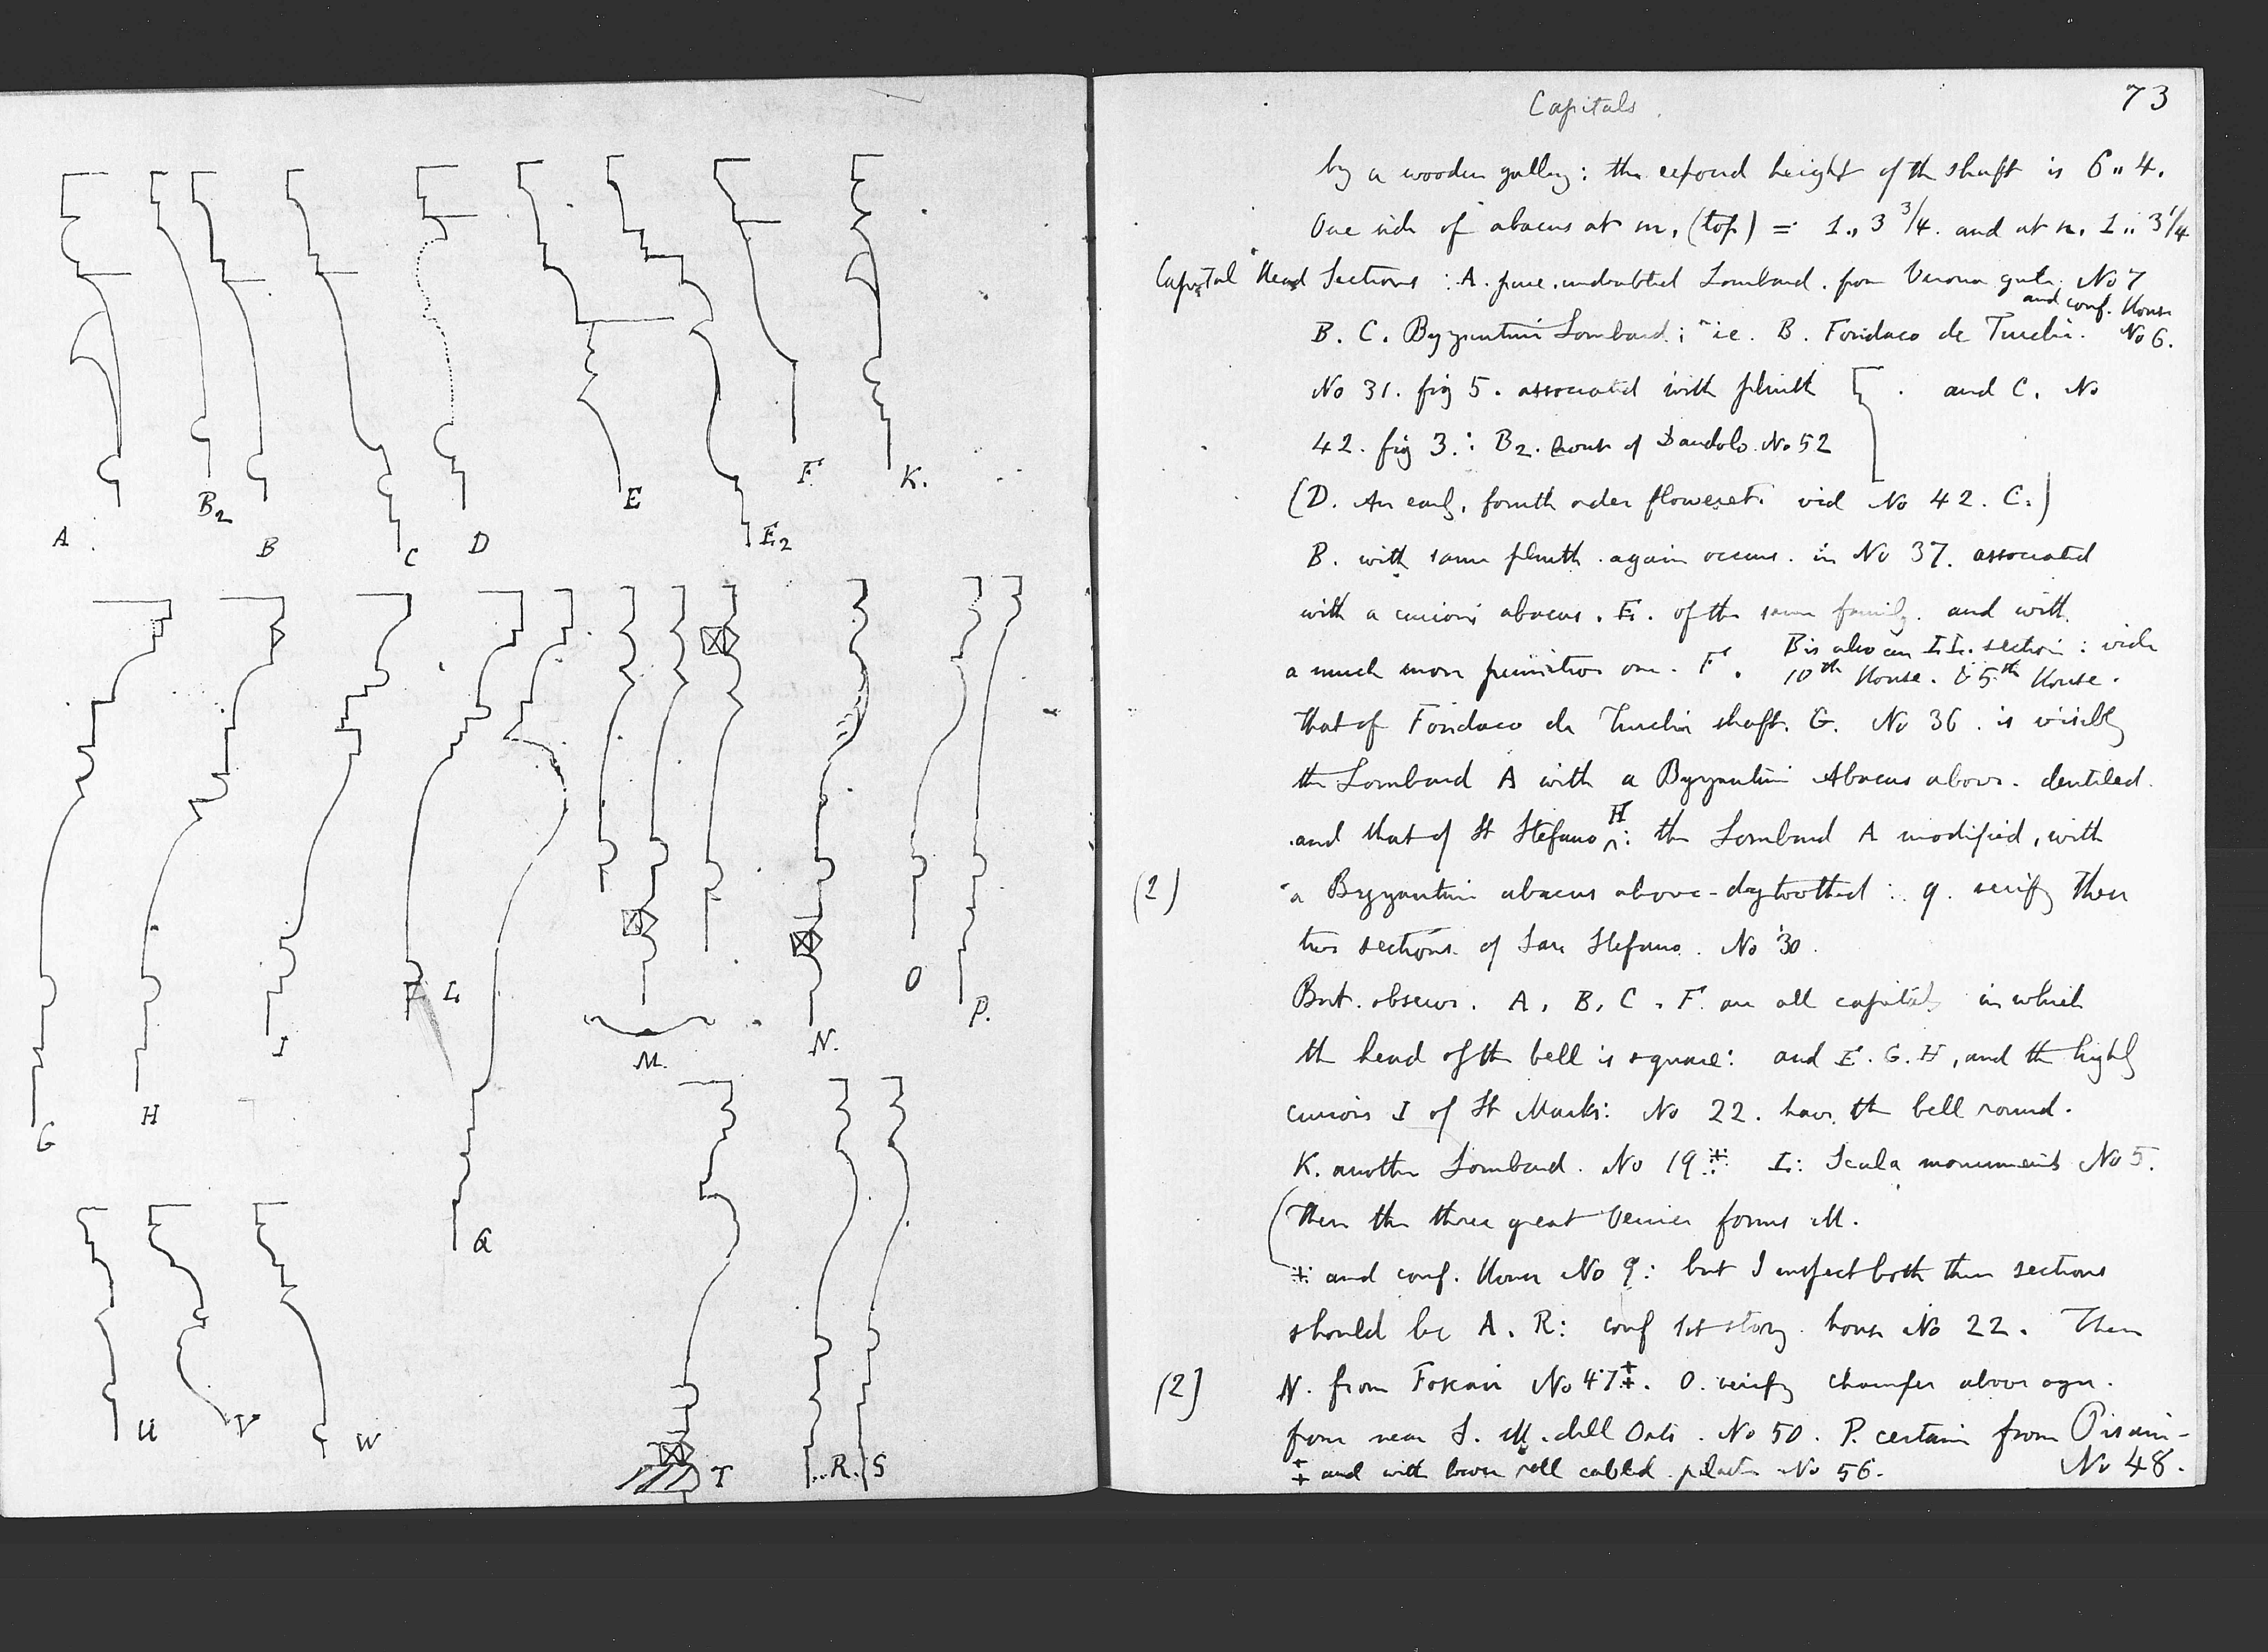 A.
B2
B
C
D
E
E2
F
K.
G
H
I
L
M.
N.
O
P.
Q
U
V
W
T
R.
S
73
Capitals.
by a wooden gallery: the exposed height of the shaft is 6.. 4.
One side of abacus at m, (top) = 1.. 3 3/4. and at n. 1.. 3 1/4
Capital Head Sections: A. pure. undoubted Lombard. from Verona gate. No 7
and conf. House
B. C. Byzantine Lombard; ie. B. Fondaco de Turchi. No 6.
No 31. fig 5. associated with plinth . and C. No
42. fig 3.: B2. house of Dandolo. No 52
(D. An early, fourth order floweret. vid No 42. C.)
B. with same plinth again occurs. in No 37. associated
with a curious abacus. E. of the same family. and with
a much more primitive one. F.
B is also an section: vide
10th House. & 5th House.
that of Fondaco de Turchi shaft. G. No 36. is visibly
the Lombard A with a Byzantine Abacus above. dentiled.
and that of St Stefano H: the Lombard A modified, with
(2) a Byzantine abacus above - dogtoothed: q. verify these
two sections of San Stefano. No 30.
But. observe. A, B, C, F. are all capitals in which
the head of the bell is square: and E. G. H, and the highly
curious I of St Marks: No 22. have the bell round.
K. another Lombard. No 19 L: Scala monuments No 5.
Then the three great forms M.
and conf. House No 9: but I suspect both these sections
should be A. R: conf 1st story. house No 22. Then
(2) N. from Foscari No 47. O. verify chamfer above ogee.
from near S. M. dell Orto. No 50. P. certain from Pisani -
and with lower roll cabled No 56. No 48.